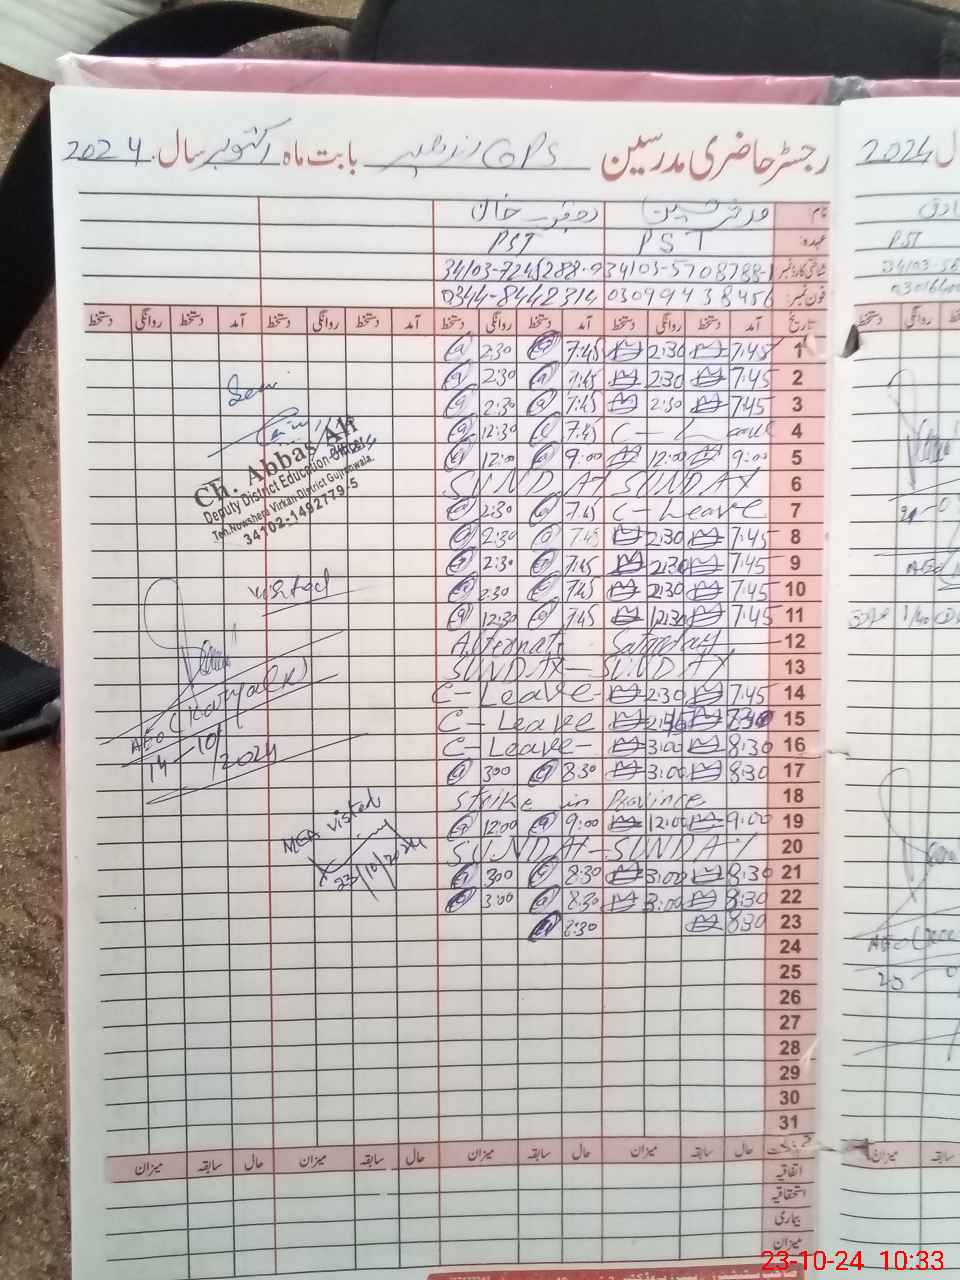 رجسٹر حاضری مدرسین GPS بابت ماہ اکتوبر سال 2024
نام:
عہدہ: PST PST
شناختی کارڈ نمبر
فون نمبر: 03099438456 0344-8442314
تاریخ آمد دستخط روانگی دستخط آمد دستخط روانگی دستخط آمد دستخط روانگی دستخط آمد دستخط روانگی دستخط
1 7:45 2:30 7:45 2:30
2 7:45 2:30 7:45 2:30
3 7:45 2:30 7:45 2:30
4 C-Leave 7:45 12:30
5 9:00 12:00 9:00 12:00
6 SUNDAY SUNDAY
7 C-Leave 7:45 2:30
8 7:45 2:30 7:45 2:30
9 7:45 2:30 7:45 2:30
10 7:45 2:30 7:45 2:30
11 7:45 12:30 7:45 12:30
12 Alternate Saturday
13 SUNDAY-SUNDAY
14 7:45 2:30 C-Leave-
15 C-Leave
16 8:30 3:00 C-Leave-
17 8:30 3:00 8:30 300
18 Strike in Province
19 9:00 12:00 9:00 12:00
20 SUNDAY-SUNDAY
21 8:30 3:00 8:30 300
22 8:30 3:00 8:30 3:00
23 8:30 8:30
24
25
26
27
28
29
30
31
حال سابقہ میزان حال سابقہ میزان حال سابقہ میزان حال سابقہ میزان
اتفاقیہ
استحقاقیہ
بیماری
میزان
Seen
Ch. Abbas Ali
Deputy District Education Officer
Teh.Nowshera Virkan District Gujranwala.
34102-1492779-5
visited
AEO
14-10/2024
MEA visted
23/10/2024
2024
PST
23-10-24 10:33